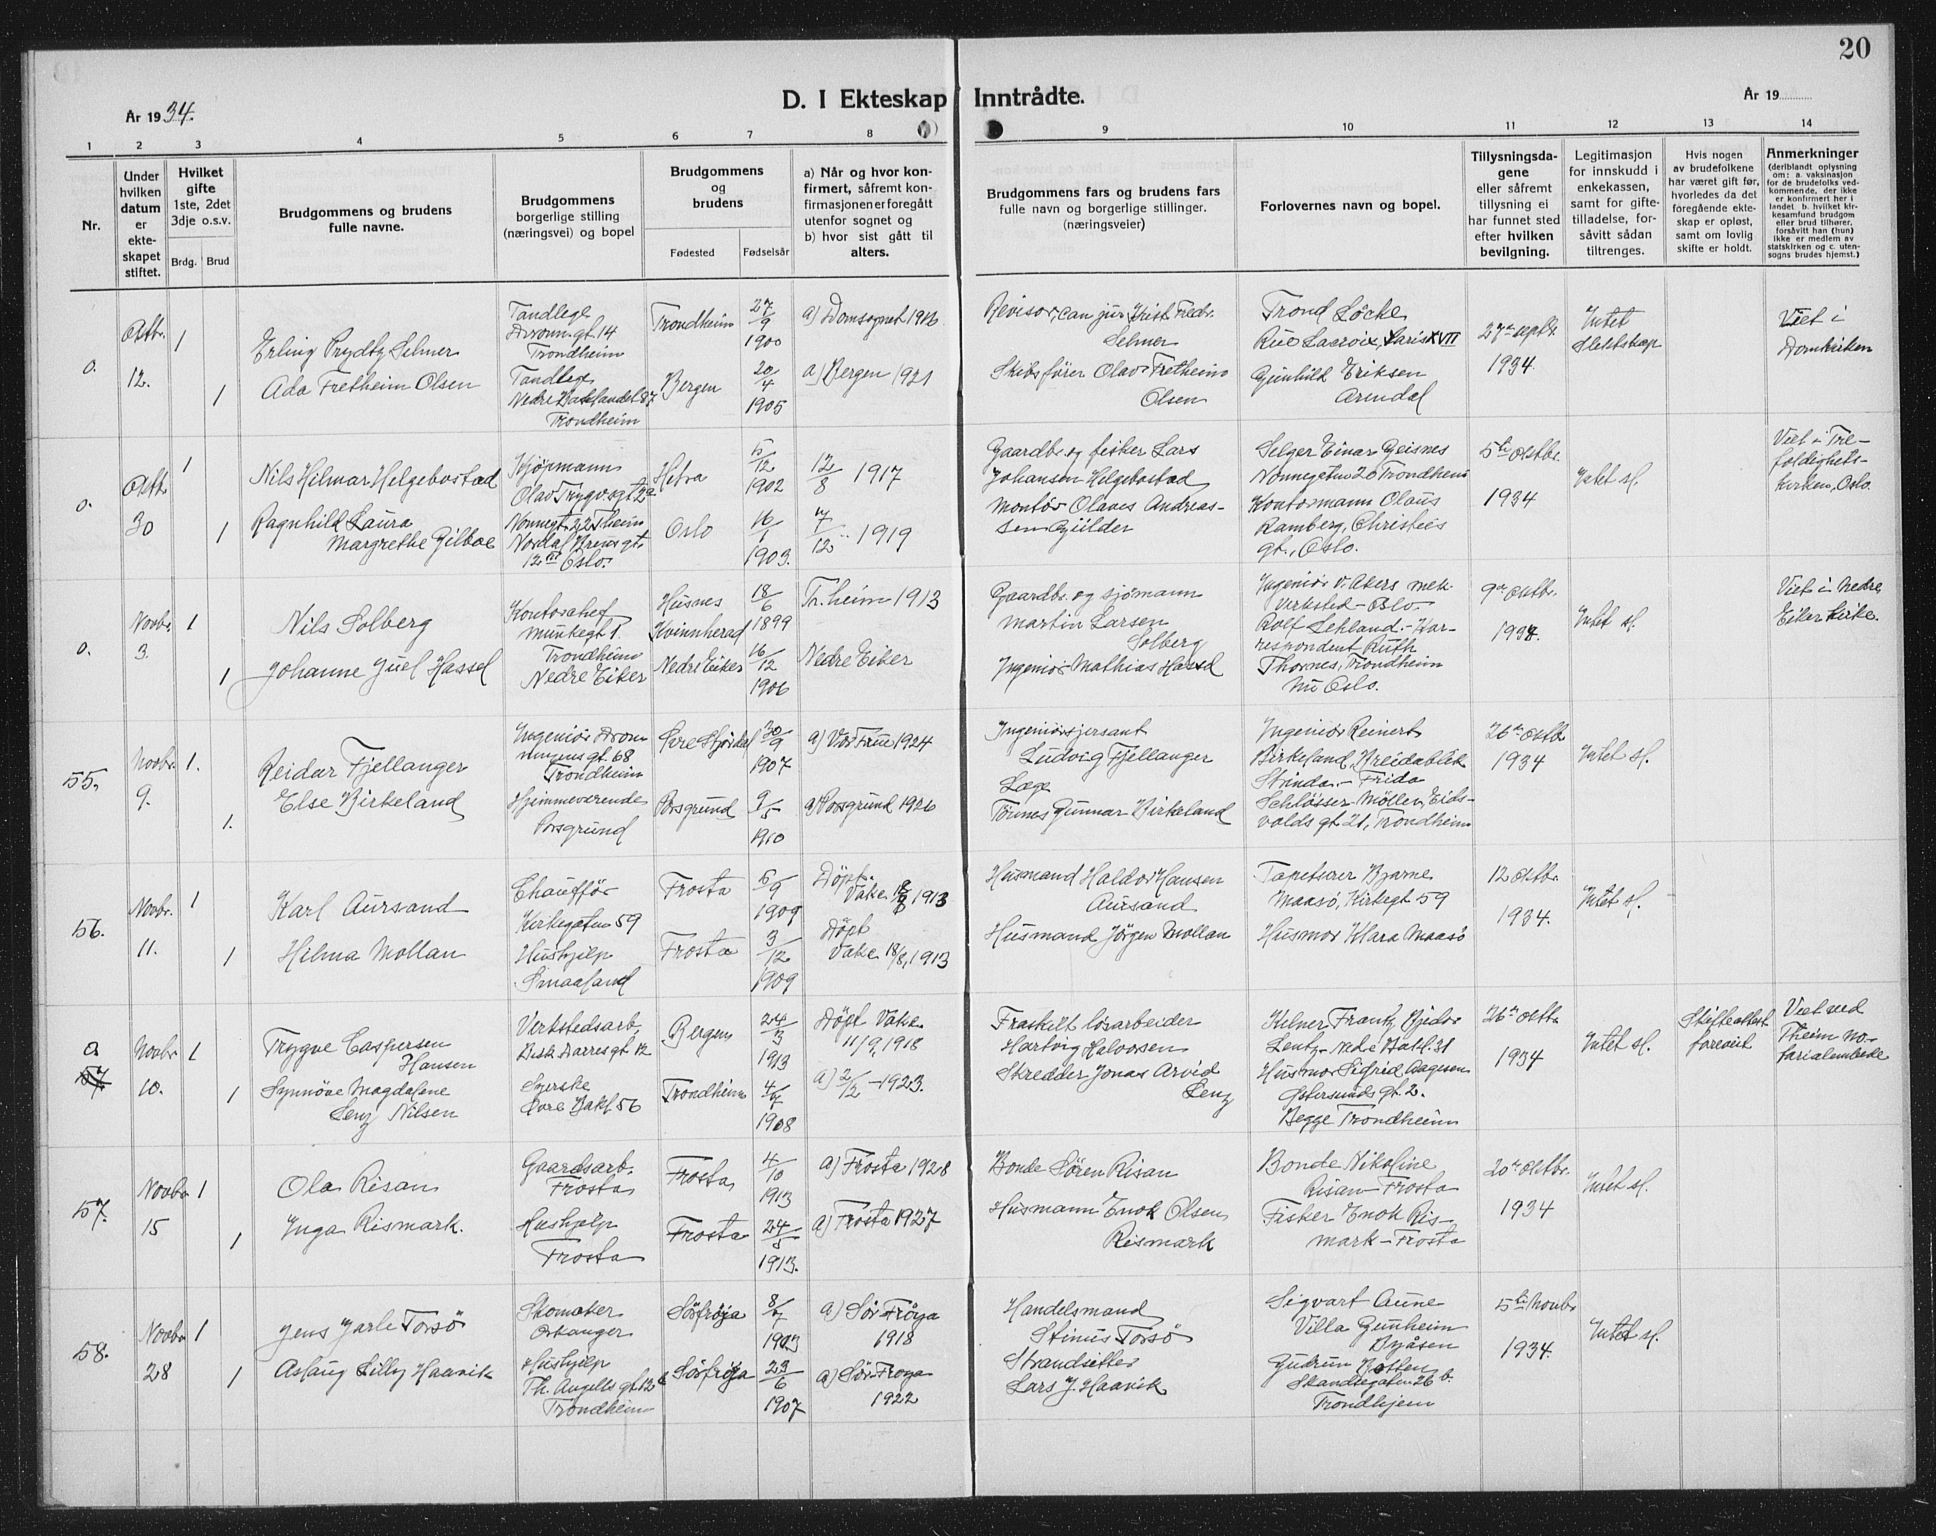 20
År 1934.
D. I Ekteskap Inntrådte.
År 19
1 2 3 4 5 6 7 8 9 10 11 12 13 14
Nr.
Under hvilken datum er ekteskapet stiftet.
Hvilket gifte 1ste, 2det 3dje o.s.v.
Brdg. Brud
Brudgommens og brudens fulle navne.
Brudgommens borgerlige stilling (næringsvei) og bopel
Brudgommens og brudens
Fødested Fødselsår
a) Når og hvor konfirmert, såfremt konfirmasjonen er foregått utenfor sognet og
b) hvor sist gått til alters.
Brudgommens fars og brudens fars fulle navn og borgerlige stillinger. (næringsveier)
Forlovernes navn og bopel.
Tillysningsdagene eller såfremt tillysning ei har funnet sted efter hvilken bevilgning.
Legitimasjon for innskudd i enkekassen, samt for giftetilladelse, forsåvitt sådan tiltrenges.
Hvis nogen av brudefolkene har været gift før, hvorledes da det foregående ekteskap er opløst, samt om lovlig skifte er holdt.
Anmerkninger (deriblandt oplysning om: a. vaksinasjon for de brudefolks vedkommende, der ikke er konfirmert her i landet b. hvilket kirkesamfund brudgom eller brud tilhører, forsåvitt han (hun) ikke er medlem av statskirken og c. utensogns brudes hjemst.)
0.
Oktbr. 12.
1
Erling Prydtz Selmer
Tandlege
Dronn.gt. 14
Trondheim
Trondheim
27/9 1900
a) Domsognet 1916
Revisor, can jur Krist. Fredr.
Selmer
Trond Løcke
Rue Lacroix, Paris XVII
27de septbr
1934
Intet
Slektskap
Viet i
Domkirken
1
Ada Fretheim Olsen
Tandlege
Nedre Baklandet 37
Trondheim
Bergen
20/4 1905
a) Bergen 1921
Skibsfører Olav Fretheim
Olsen
Gunhild Eriksen
Arendal
0.
Oktb. 30
1
Nils Hilmar Helgebostad
Kjøpmann
Olav Trygv.gt. 2a
Hitra
5/12 1902
12/8 1917
Gaardbr. og fisker Lars
Johansen Helgebostad
Selger Einar Geisnes
Nonnegaten 20 Trondheim
5te oktbr.
1934
Intet sl.
Viet i Tre-
foldighets-
kirken, Oslo.
1
Ragnhild Laura
Margrethe Gilboe
Nonnegt. 22 Theim
Nordal Brunsgt.
12 Oslo.
Oslo
16/1 1903.
7/12 1919
Montør Olaves Andreas-
sen Gulder
Kontormann Olaus
Ramberg, Christies
gt., Oslo.
0.
Novbr. 3.
1
Nils Solberg
Kontorchef
Munkegt 1.
Trondheim
Husnes
Kvinnherad
18/6 1899
Tr.heim 1913
Gaardbr. og sjømann
Martin Larsen
Solberg
Ingeniør v. Akers mek.
Verksted - Oslo.
Rolf Sehland. - Kor-
respondent Ruth
Thornes, Trondheim
nu Oslo.
9de oktbr.
1934.
Intet sl.
Viet i Nedre
Eiker kirke.
1
Johanne Juel Hassel
Nedre Eiker
Nedre Eiker
16/12 1906
Nedre Eiker
Ingeniør Mathias Hassel
55.
Novbr. 9.
1.
Reidar Fjellanger
Ingeniør Dron
ningensgt. 68
Trondheim
Øvre Stjørdal
30/9 1907
a) Vor Frue 1924
Ingeniørsjersant
Ludvig Fjellanger
Ingeniør Reinert
Birkeland, Breidablik
Strinda. - Frida
Schlösser-Møller, Eids-
voldsgt. 21, Trondheim
26de oktb
1934
Intet sl.
1.
Else Birkeland
Hjemmeværende
Porsgrund
Porsgrund
9/5 1910
a) Porsgrund 1926
Læge
Tønnes Gunnar Birkeland
56.
Novbr. 11.
1
Karl Aursand
Chaufför
Kirkegaten 59
Frosta
5/9 1909
Döpt.
Vake 18/8 1913
Husmand Haldor Hansen
Aursand
Tapetserer Bjarne
Maasø, Kirkegt 59
12 oktbr.
1934.
Intet sl.
1
Hilma Mollan
Hushjelp
Småland
Frosta
3/12 1909
Döpt
Vake 18/8, 1913
Husmand Jørgen Mollan
Husmor Klara Maasø
a
57
Novbr. 10.
1
Trygve Caspersen
Hansen
Verkstedsarb.
Bisk. Darresgt. 12
Bergen
24/3 1913
Döpt Vake.
11/9, 1918
Fraskilt løsarbeider
Hartvig Halvorsen
Kelner Frantz Bjedor
Lentz - Nedre Bakl. 31
26de oktb.
1934
Intet sl.
Skifteattest
forevist
Viet ved
Theim no-
tarialembede
1
Synnöve Magdalene
Lenz Nilsen
Syerske
Øvre Bakl. 56
Trondheim
1908
a) 2/12 - 1923.
Skredder Jonas Arvid
Lenz
Husmor Sigrid Aagesen
Østersundsgt. 2.
Begge Trondheim
57.
Novbr 15
1
Ola Risan
Gaardsarb.
Frosta
Frosta
4/10 1913
a) Frosta 1928
Bonde Søren Risan
Bonde Nikoline
Risan - Frosta
20de oktbr.
1934
Intet sl.
1
Inga Rismark.
Hushjelp
Frosta
Frosta
24/5 1913.
a) Frosta 1927
Husmann Enok Olsen
Rismark
Fisker Enok Ris-
mark - Frosta
58.
Novbr 28
1
Jens Jarle Torsö
Skomaker
Orkanger
Sörfröya
8/7 1903
a) Sör Fröya
1918
Handelsmand
Stinus Torsö
Sigvart Aune
Villa Gunheim
Byåsen
5te Novbr
1934.
Intet sl.
1
Aslaug Lilly Haavik
Hushjelp
Th. Angells gt. 12
Trondheim
Sörfröya
23/6 1907
a) Sör Fröya
1922
Strandsitter
Lars J. Haavik
Gudrun Botten
Skansegaten 26 b.
Trondhjem